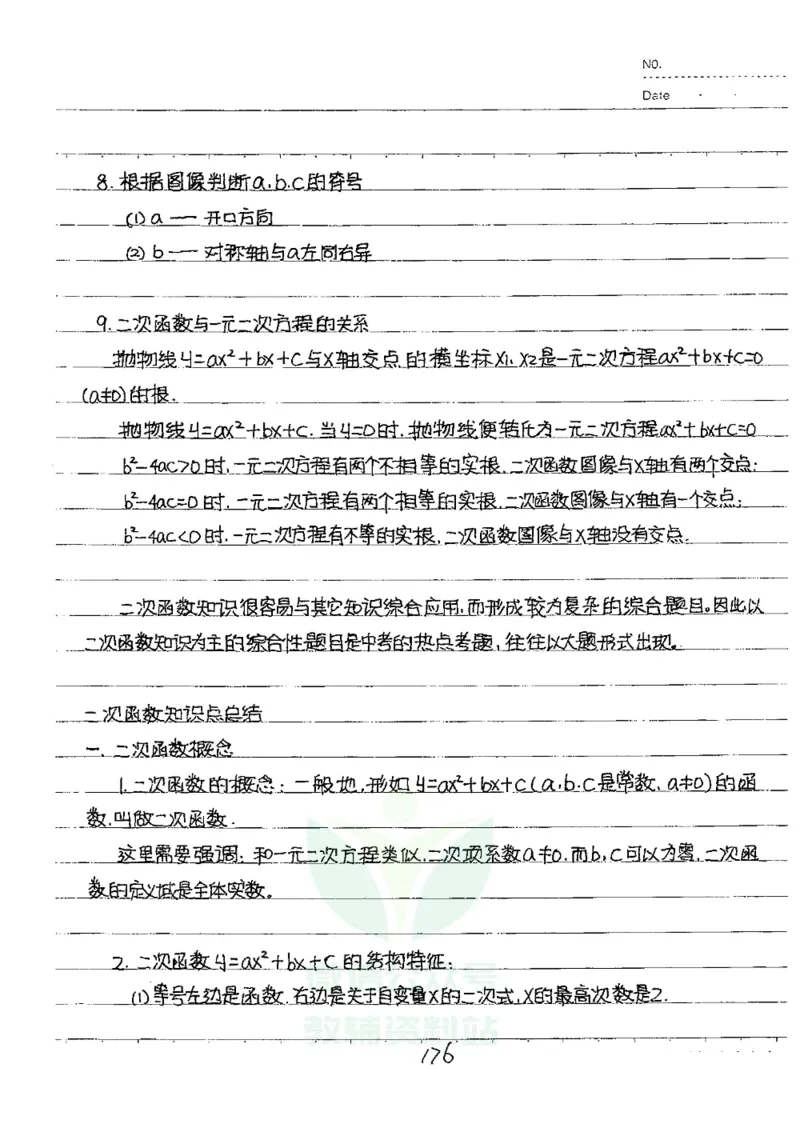 NO.
Date
8.根据图像判断a.b.c的符号
(1) a — 开口方向
(2) b — 对称轴与a左同右异
9.二次函数与一元二次方程的关系
抛物线y=ax²+bx+c与x轴交点的横坐标x1、x2是一元二次方程ax²+bx+c=0
(a≠0)的根.
抛物线y=ax²+bx+c.当y=0时.抛物线便转化为一元二次方程ax²+bx+c=0
b²-4ac>0时,一元二次方程有两个不相等的实根.二次函数图像与x轴有两个交点;
b²-4ac=0时.一元二次方程有两个相等的实根.二次函数图像与x轴有一个交点;
b²-4ac<0时.一元二次方程有不等的实根,二次函数图像与x轴没有交点.
二次函数知识很容易与其它知识综合应用,而形成较为复杂的综合题目。因此以
二次函数知识为主的综合性题目是中考的热点考题,往往以大题形式出现。
二次函数知识点总结
一、二次函数概念
1.二次函数的概念:一般地,形如y=ax²+bx+c(a,b.c是常数,a≠0)的函
数,叫做二次函数.
这里需要强调:和一元二次方程类似,二次项系数a≠0.而b,c可以为零,二次函
数的定义域是全体实数。
2.二次函数y=ax²+bx+c的结构特征:
(1)等号左边是函数.右边是关于自变量x的二次式,x的最高次数是2.
微信公众号
教辅资料站
176